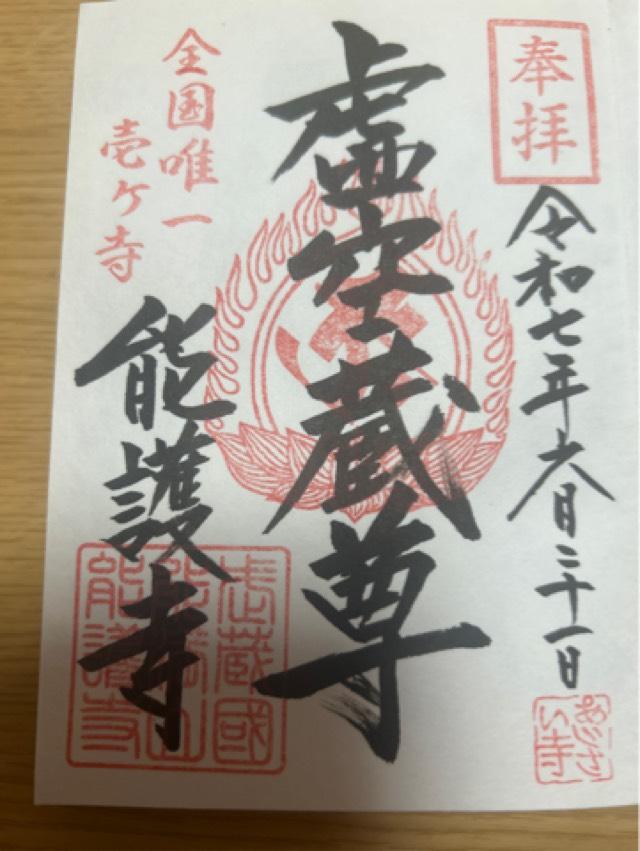 奉拝
令和七年六月二十一日
あじさい寺
虚空蔵尊
全国唯一
壱ケ寺
能護寺
武蔵國
能護寺